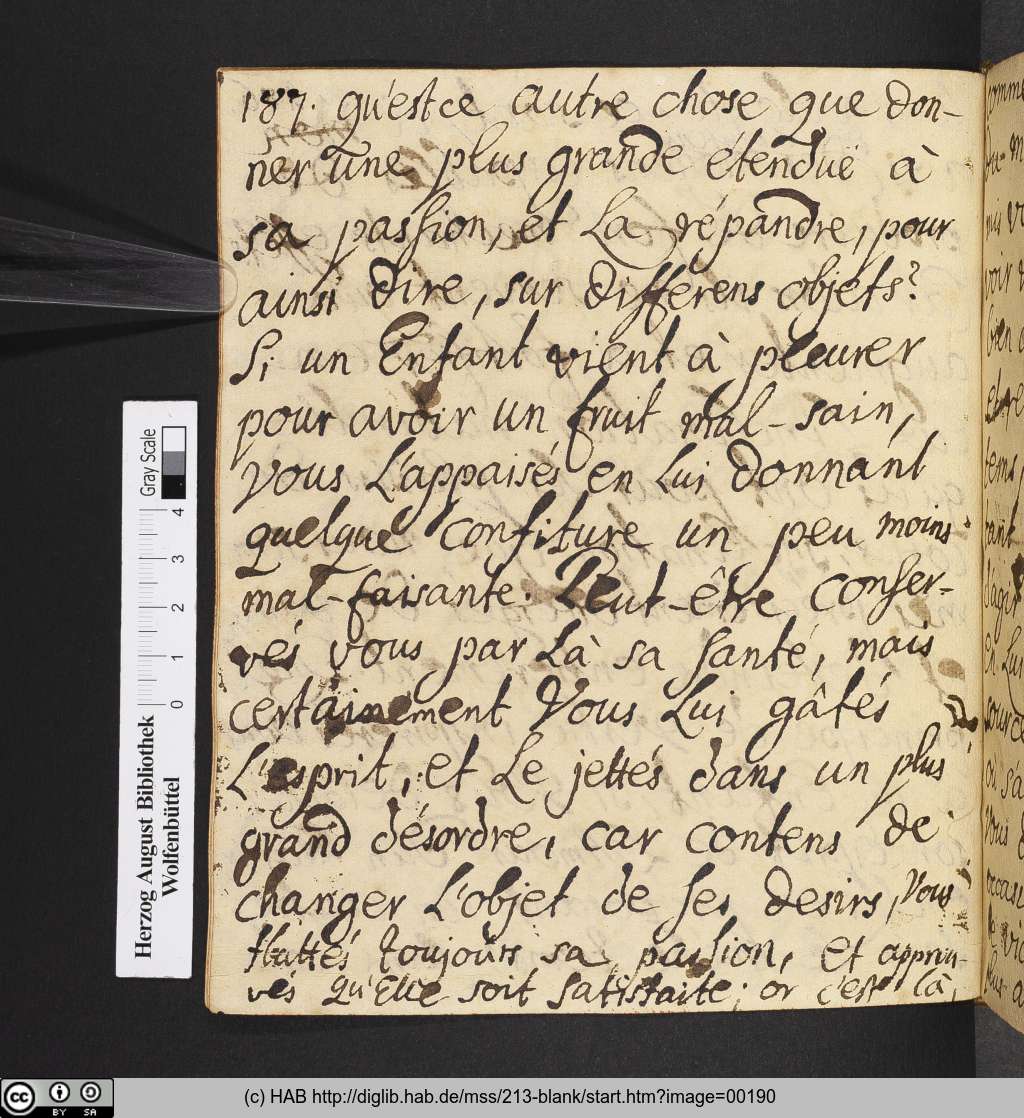 187. qu'est ce autre chose que don-
ner une plus grande étenduë à
sa passion, et La répandre, pour
ainsi dire, sur differens objets?
Si un Enfant vient à pleurer
pour avoir un fruit mal-sain,
vous L'appaisés en Lui donnant
quelque confiture un peu moins
mal-faisante. Peut-être conser-
vés vous par Là sa santé, mais
certainement Vous Lui gâtés
L'esprit, et Le jettés dans un plus
grand désordre, car contens de
changer L'objet de ses desirs, Vous
flattés toujours sa passion, et approu-
vés qu'Elle soit satisfaite; or c'est là,
Gray Scale
0 1 2 3 4
Herzog August Bibliothek
Wolfenbüttel
cc BY SA
(c) HAB http://diglib.hab.de/mss/213-blank/start.htm?image=00190